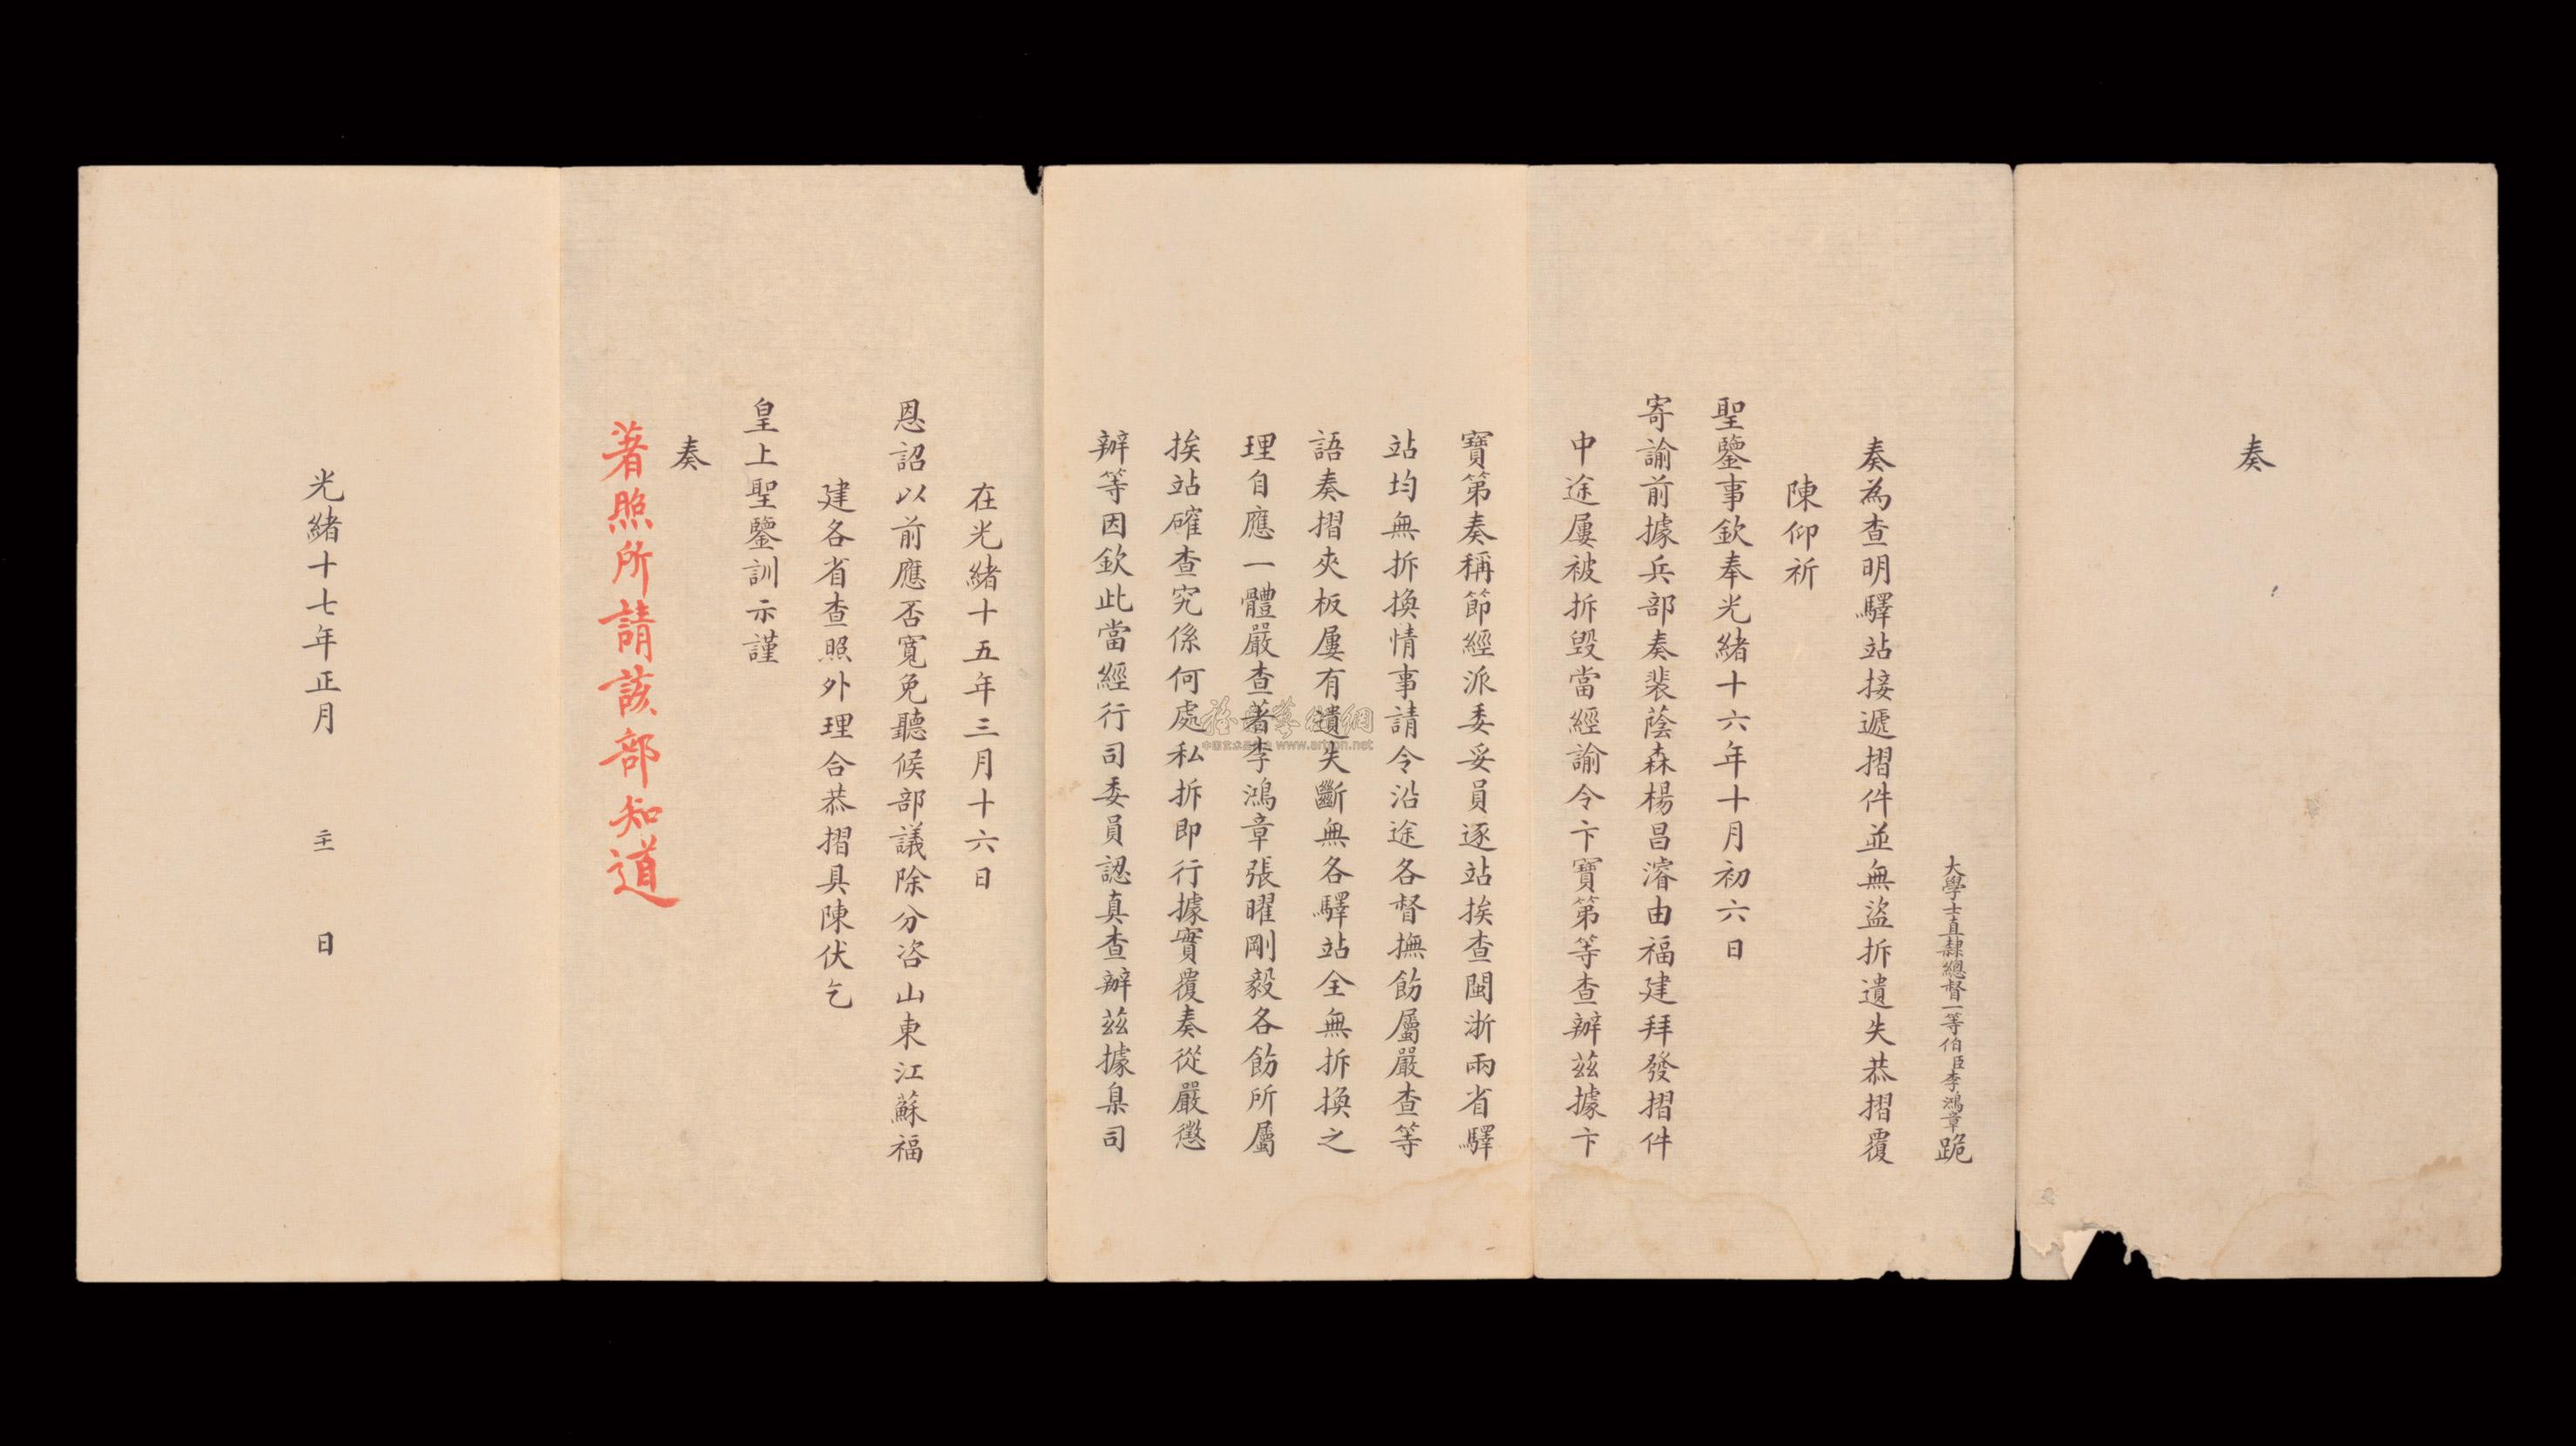 奏
大學士直隸總督一等伯臣李鴻章跪
奏為查明驛站接遞摺件並無盜拆遺失恭摺覆
陳仰祈
聖鑒事欽奉光緒十六年十月初六日
寄諭前據兵部奏裴蔭森楊昌濬由福建拜發摺件
中途屢被拆毀當經諭令卞寶第等查辦茲據卞
寶第奏稱節經派委妥員逐站挨查閩浙兩省驛
站均無拆換情事請令沿途各督撫飭屬嚴查等
語奏摺夾板屢有遺失斷無各驛站全無拆換之
理自應一體嚴查著李鴻章張曜剛毅各飭所屬
挨站確查究係何處私拆即行據實覆奏從嚴懲
辦等因欽此當經行司委員認真查辦茲據臬司
在光緒十五年三月十六日
恩詔以前應否寬免聽候部議除分咨山東江蘇福
建各省查照外理合恭摺具陳伏乞
皇上聖鑒訓示謹
奏
著照所請該部知道
光緒十七年正月 二十一 日
中国艺术品 www.artron.net